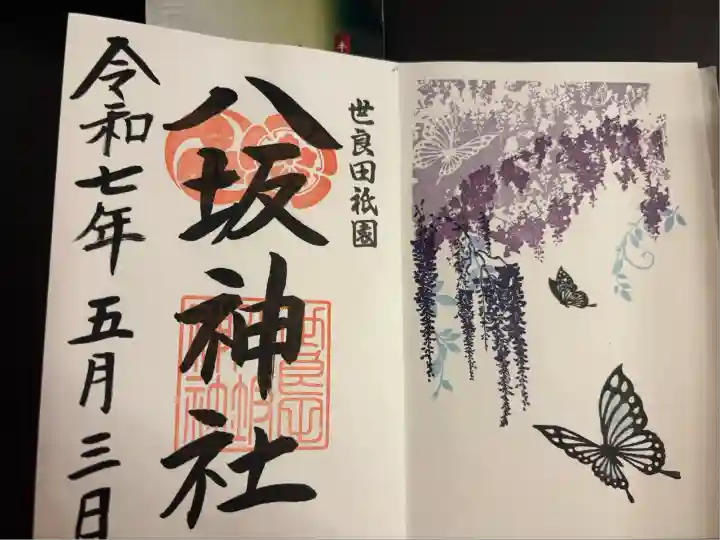 世良田祇園
八坂神社
令和七年 五月 三日